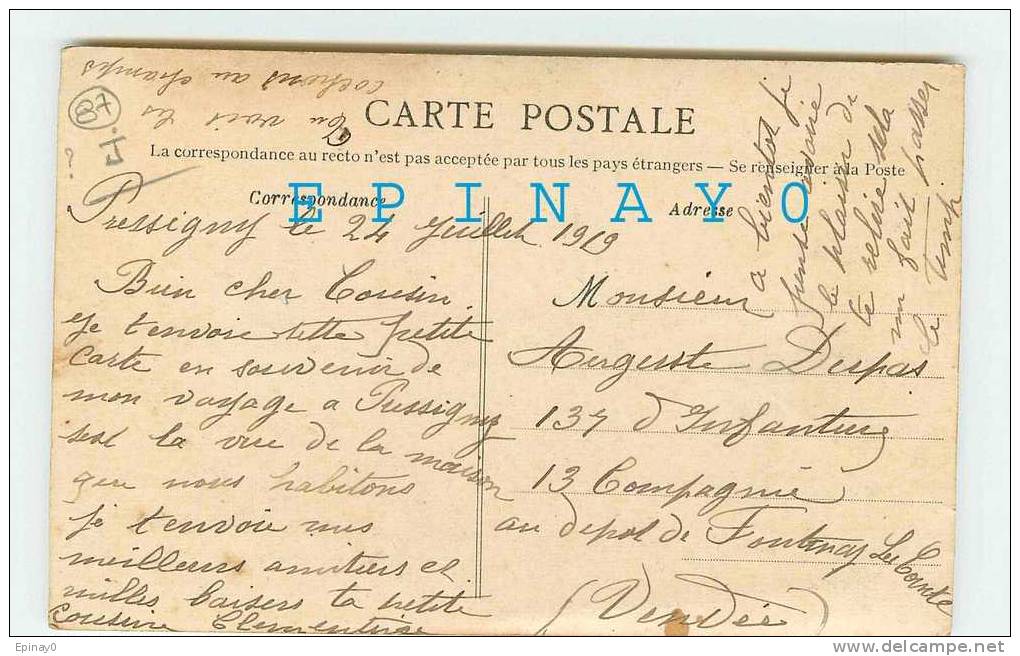 cochons au champs
Tu vois les
87
CARTE POSTALE
La correspondance au recto n'est pas acceptée par tous les pays étrangers — Se renseigner à la Poste
EPINAYO
Correspondance
Adresse
Pressigny le 24 Juillet 1919
Bien cher Cousin
Je t'envoie cette petite
carte en souvenir de
mon voyage a Pressigny
sest la vue de la maison
que nous habitons
Je t'envoie mes
meilleurs amitiers et
milles baisers ta petite
cousine Clementine
a bientot je
le plaisir de
te relire sela
men fait passer
le temp
Monsieur
Auguste Despas
137 d'Infanterie
13 Compagnie
au depot de Fontenay Le Comte
(Vendée)
Epinay0
www.delcampe.net